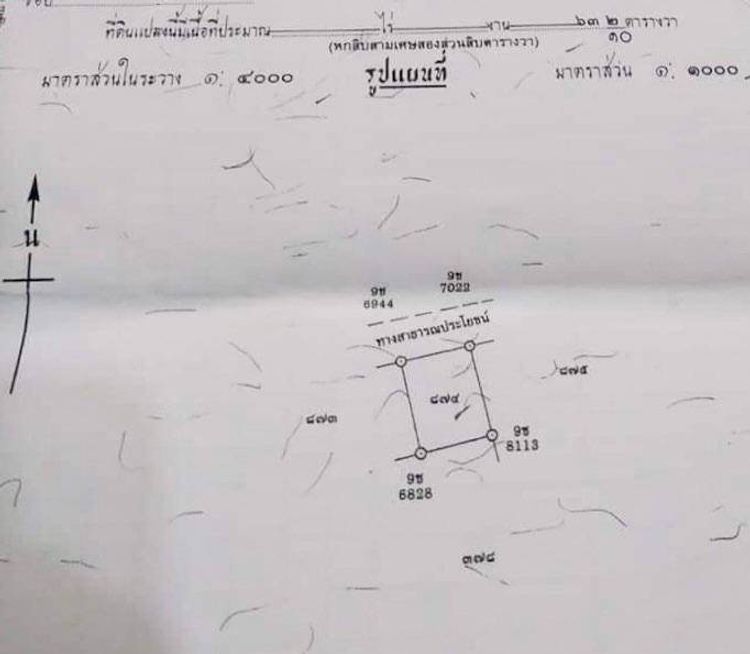 ที่ดินแปลงนี้มีเนื้อที่ประมาณ ไร่ งาน ๖๓ ๒/๑๐ ตารางวา
(หกสิบสามเศษสองส่วนสิบตารางวา)
มาตราส่วนในระวาง ๑: ๔๐๐๐ รูปแผนที่ มาตราส่วน ๑: ๑๐๐๐
น
9ช
6944
9ช
7022
ทางสาธารณประโยชน์
๘๗๓
๘๗๔
๘๗๕
9ช
8113
9ช
6828
๓๗๘